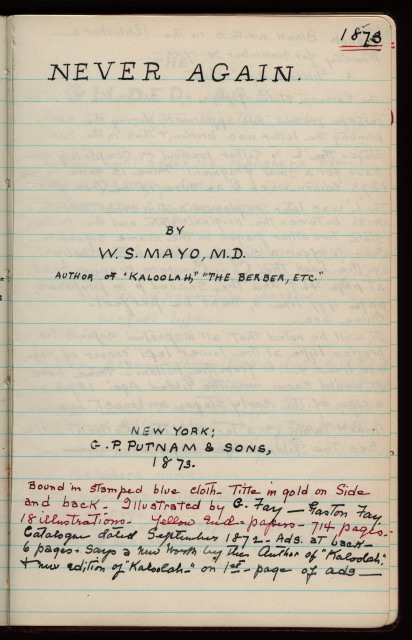 1873
NEVER AGAIN.
BY
W. S. MAYO, M.D.
AUTHOR OF "KALOOLAH," "THE BERBER, ETC."
NEW YORK;
G. P. PUTNAM & SONS,
1873.
Bound in stamped blue cloth - Title in gold on Side
and back - Illustrated by G. Fay - Gaston Fay
18 illustrations - Yellow End-papers - 714 pages. -
Catalogue dated September 1872 - Ads. at back -
6 pages - Says a new work by the Author of "Kaloolah",
+ new edition of "Kaloolah" - on 1st - page of ads -